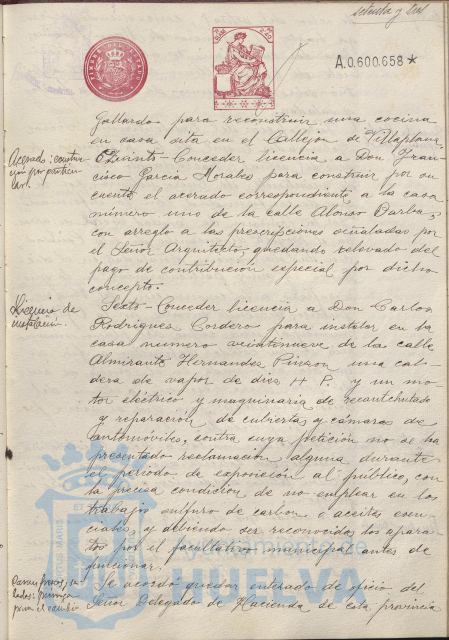 setenta y dos
TIMBRE DEL ESTADO
A.0.600.658*
Gallardo para reconstruir una cocina
en casa sita en el Callejon de Villaplana.
Acerado: construc
ción por particu
lar.
Quinto = Conceder licencia a Don Fran-
cisco García Morales para construir por su
cuenta el acerado correspondiente a la casa
número uno de la calle Alonso Barba,
con arreglo a las prescripciones señaladas por
el Señor Arquitecto, quedando relevado del
pago de contribución especial por dicho
concepto.
Licencia de
instalación.
Sexto = Conceder licencia a Don Carlos
Rodriguez Cordero para instalar en la
casa número veintinueve de la calle
Almirante Hernandez Pinzon una cal-
dera de vapor de diez H P. y un mo-
tor eléctrico y maquinaria de recauchutado
y reparación de cubiertas y cámaras de
automóviles, contra cuya petición no se ha
presentado reclamación alguna durante
el período de exposición al público, con
la precisa condición de no emplear en los
trabajos sulfuro de carbon o aceites esen-
ciales, y debiendo ser reconocidos los apara-
tos por el facultativo municipal antes de
funcionar.
para el cambio
Se acordó quedar enterado de oficio del
Señor Delegado de Hacienda de esta provincia
Ayuntamiento de
HUELVA